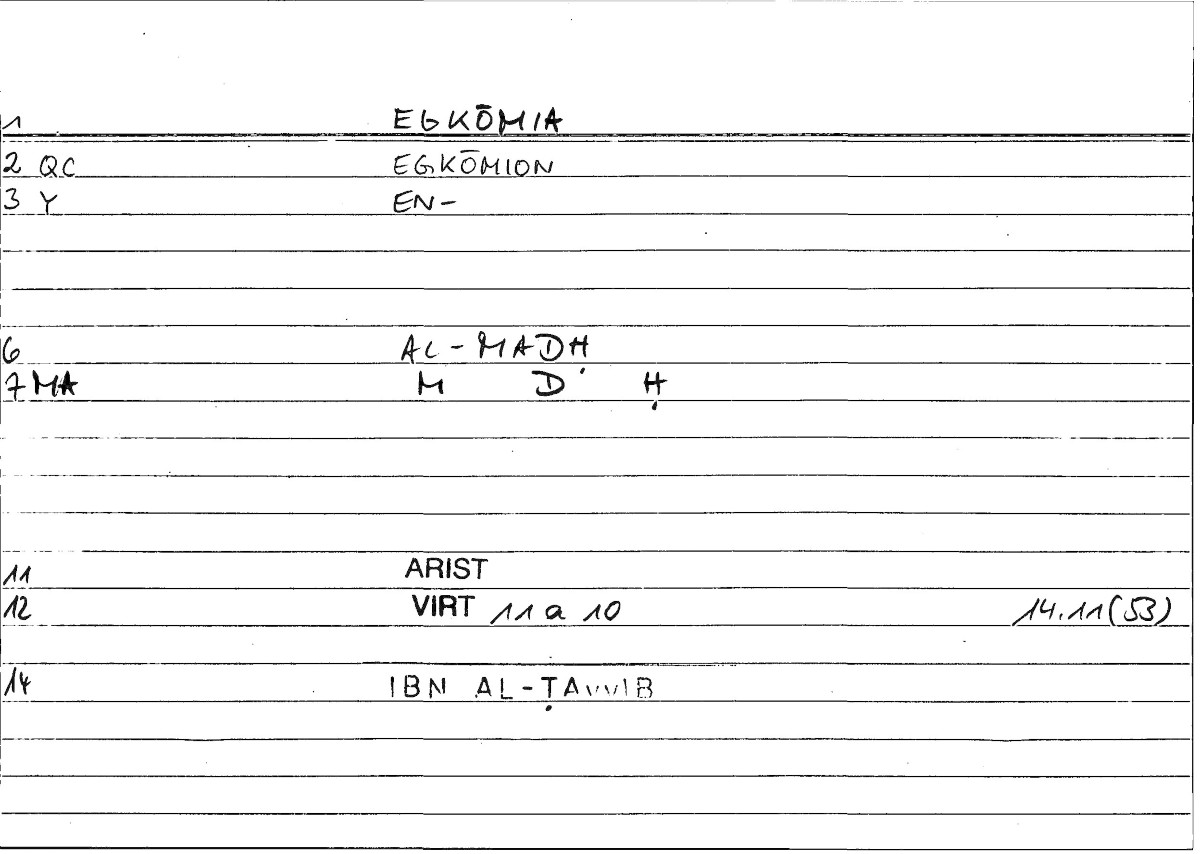 1 EGKŌMIA
2 QC EGKŌMION
3 Y EN-
6 AL-MADḤ
7 MA M D Ḥ
11 ARIST
12 VIRT 11 a 10 14.11(53)
14 IBN AL-ṬAYYIB